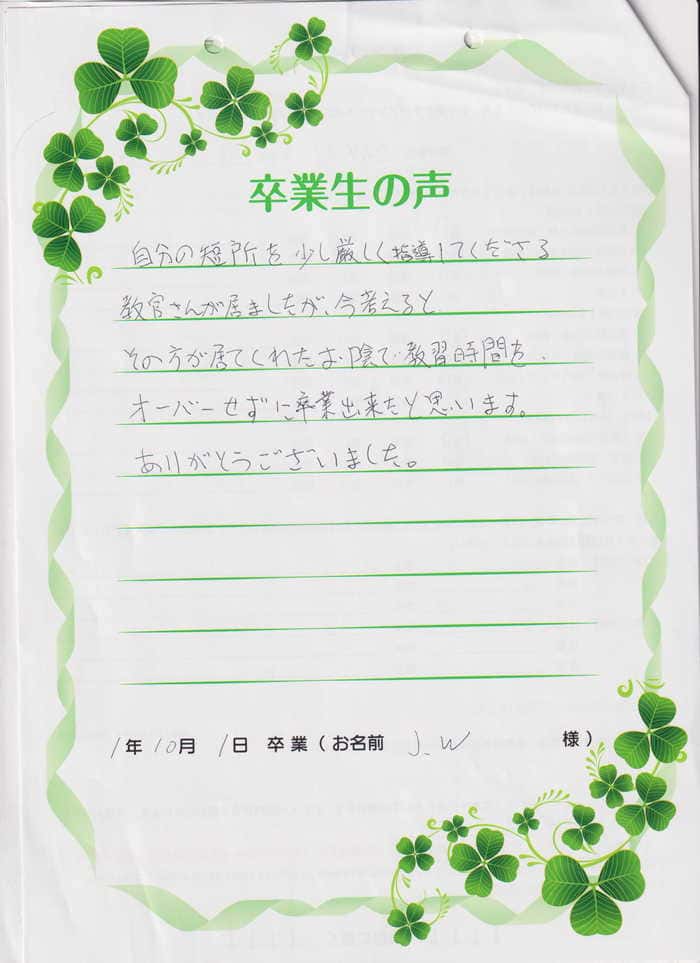 卒業生の声
自分の短所を少し厳しく指導してくださる
教官さんが居ましたが、今考えると
その方が居てくれたお陰で教習時間を
オーバーせずに卒業出来たと思います。
ありがとうございました。
1年10月1日 卒業(お名前 J.W 様)